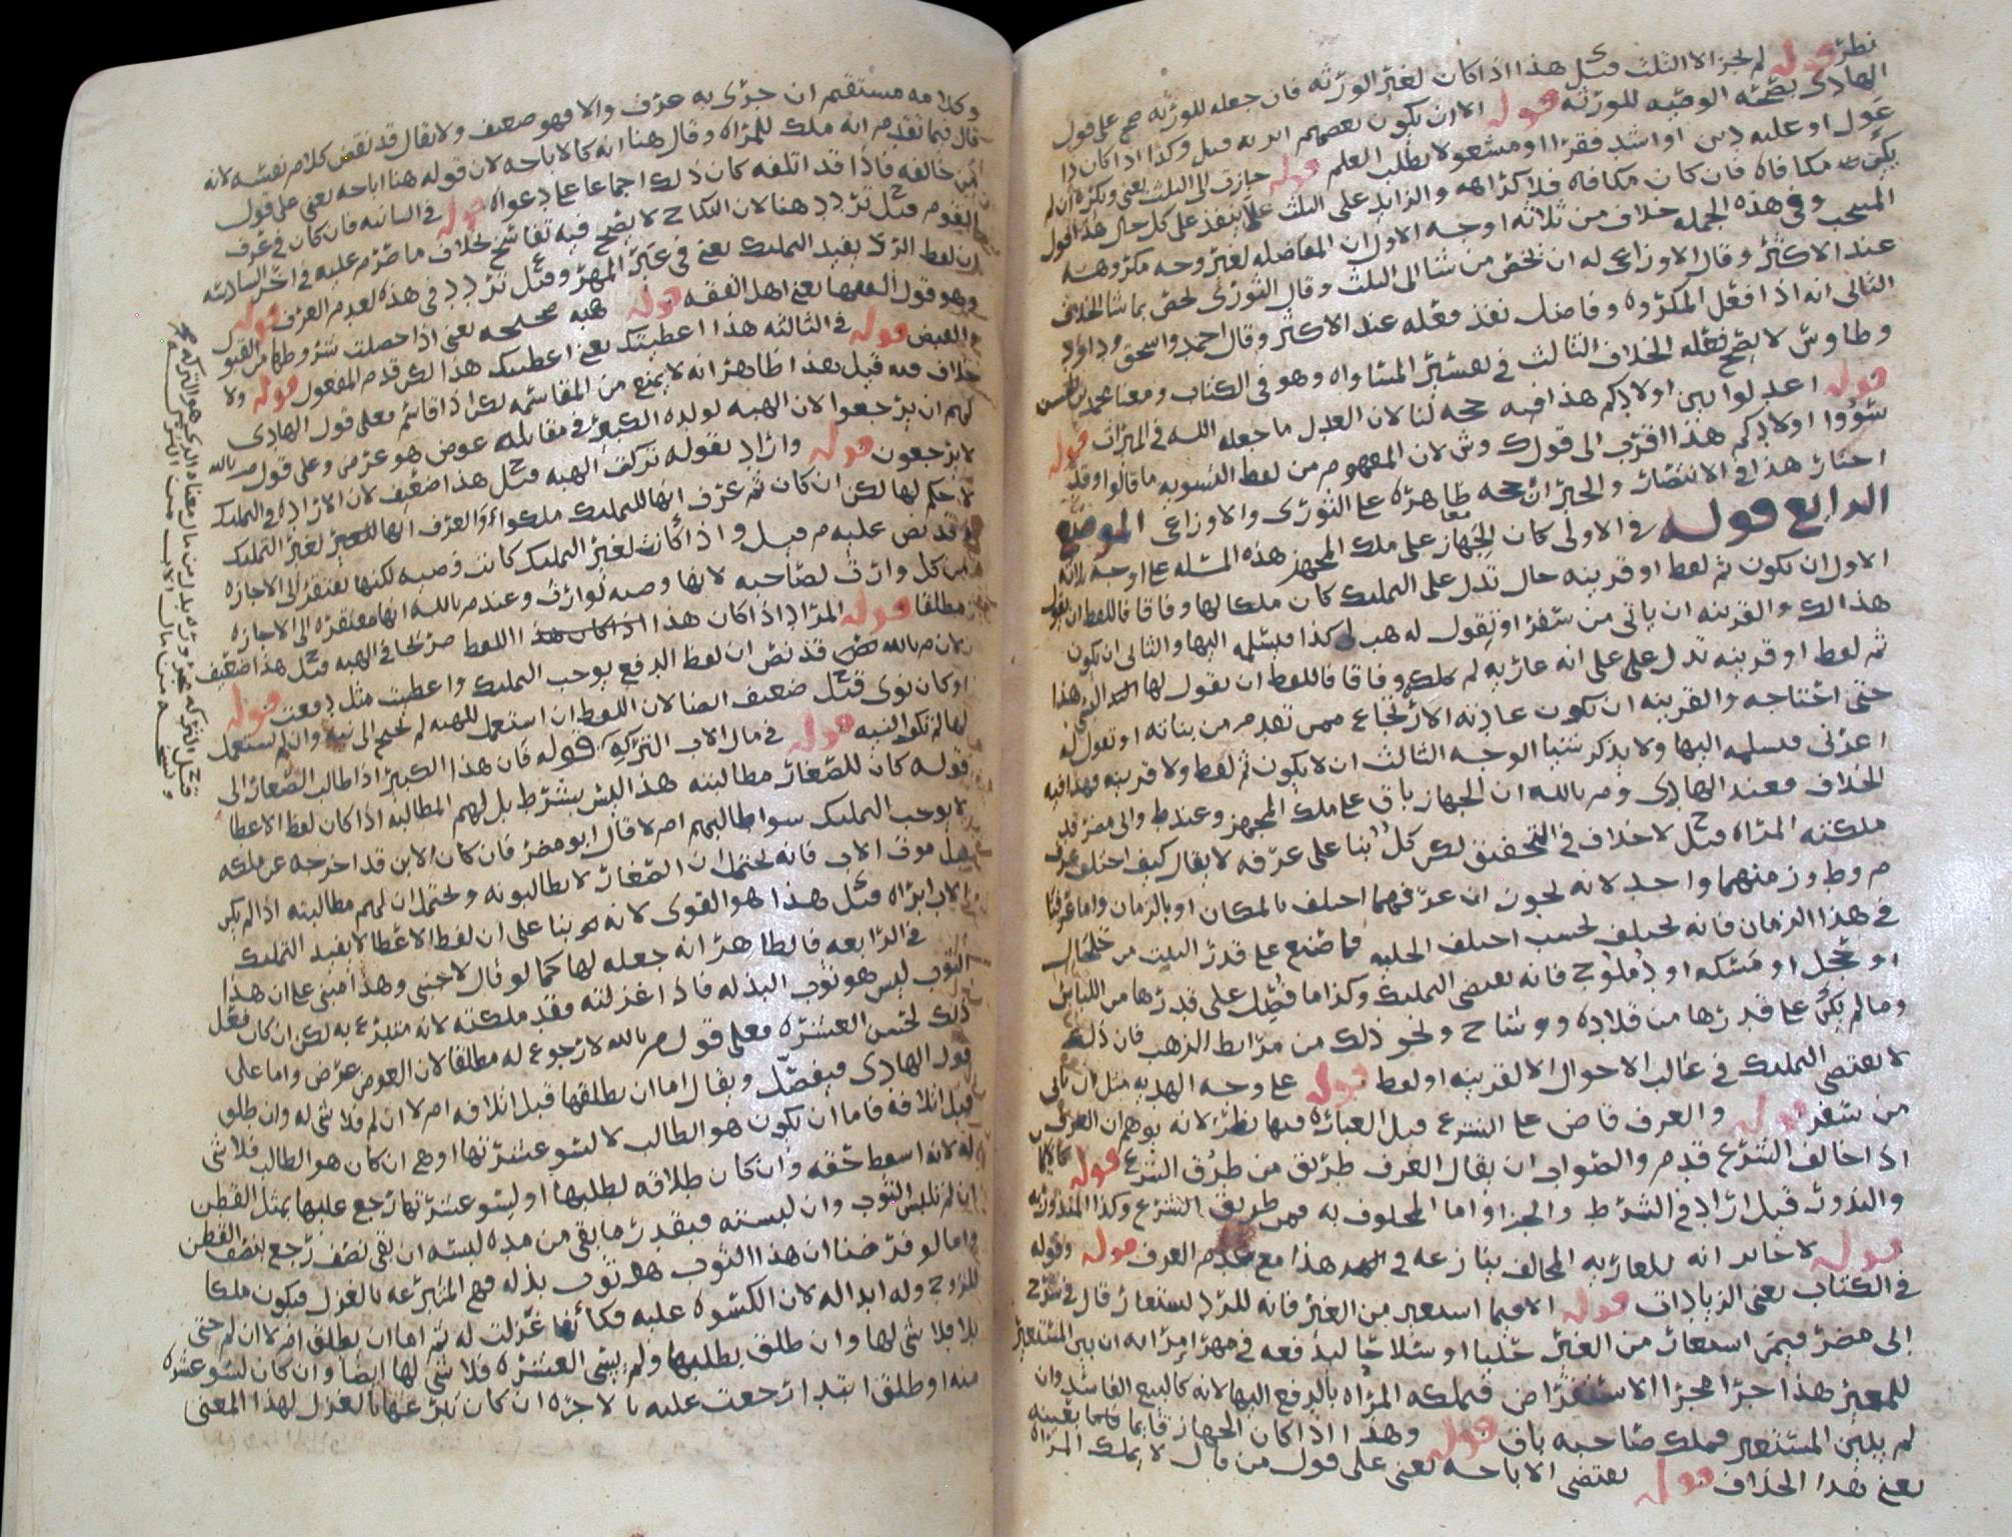 نظر قوله لم يجز الا الثلث قيل هذا اذا كان لغير الورثه فان جعله للورثه صح على قول
الهادي بصحه الوصيه للورثه قوله الا ان يكون بعضهم ابر به قيل وكذا اذا كان ذا
عول او عليه دين او اشد فقرا او مشغولا بطلب العلم قوله جاز الى الثلث يعني ويكره ان لم
يكن مكافاه فان كان مكافاه فلا كراهه والزايد على الثلث ينفذ على كل حال هذا قول
وفي هذه الجمله خلاف من ثلاثه اوجه الاول ان المفاضله لغير وجه مكروهه
عند الاكثر وقال الاوزاعي له ان يخص من شا الى الثلث وقال الثوري يخص بما شا الخلاف
الثاني انه اذا فعل المكروه وفاضل نفذ فعله عند الاكثر وقال احمد واسحق وداود
وطاوس لا يصح فعله الخلاف الثالث في تفسير المساواه وهو في الكتاب ومعنا محمد بن الحسن
قوله اعدلوا بين اولادكم هذا فيه حجه لنا لان العدل ما جعله الله في الميراث قوله
سووا اولادكم هذا اقرب الى قول ك وش لان المفهوم من لفظ التسويه ما قالوا وقد
اختار هذا في الانتصار والخبران حجه ظاهره على الثوري والاوزاعي الموضع
الرابع قوله في الاولى كان الجهاز على ملك المجهز هذه المسله على اوجه ثلاثه
الاول ان يكون ثم لفظ او قرينه حال تدل على التمليك كان ملكا لها وفاقا فاللفظ ان يقول
هذا لك والقرينه ان ياتي من سفر او تقول له هب لي كذا فيسلمه اليها والثاني ان يكون
ثم لفظ او قرينه تدل على انه عاريه لم تملكه وفاقا فاللفظ ان يقول لها البسي هذا
حتى احتاجه والقرينه ان يكون عادته الارتجاع ممن تقدم من بناته او تقول له
اعرني فيسلمه اليها ولا يذكر شيا الوجه الثالث ان لا يكون ثم لفظ ولا قرينه فهذا فيه
الخلاف فعند الهادي وم بالله ان الجهاز باق على ملك المجهز وعند ط وابي مضر قد
ملكته المراه قيل لا خلاف في التحقيق لكن كل بنا على عرفه لا يقال كيف اختلف عرف
م وط وزمنهما واحد لانه يجوز ان عرفهما اختلف بالمكان او بالزمان واما عرفنا
في هذا الزمان فانه يختلف بحسب اختلف الحليه فما صنع على قدر البنت من خلخال
او حجل او مسكه او دملوج فانه يقتضي التمليك وكذا ما فصل على قدرها من اللباس
وما لم يكن على قدرها من قلاده ووشاح ونحو ذلك من مرابط الذهب فان ذلك
لا يقتضي التمليك في غالب الاحوال الا لقرينه او لفظ قوله على وجه الهديه مثل ان ياتي
من سفر قوله والعرف قاض على الشرع قيل العباره فيها نظر لانه يوهم ان العرف
اذا خالف الشرع قدم والصواب ان يقال العرف طريق من طرق الشرع قوله كالايمان
والنذور قيل اراد في الشرط والجزا واما المحلوف به فمن طريق الشرع وكذا المنذور به
قوله لا خلاف انه للعاريه المخالف ينازعه في هذا مع عدم العرف قوله وقوله
في الكتاب يعني الزيادات قوله الا فيما استعير من الغير فانه للرد ليستعار قال في شرح
ابي مضر فيمن استعار من الغير حليا او سلاحا ليدفعه في مهر امراته ان بين المستعير
للمعير هذا جرا مجرا الاستقراض فتملكه المراه بالدفع اليها لانه كالبيع الفاسد وان
لم يبين المستعير فملك صاحبه باق قوله وهذا اذا كان الجهاز قايما بعينه
يعني بهذا الخلاف قوله يقتضي الاباحه يعني على قول من قال لا يملك المراه
وكلامه مستقيم ان جرى به عرف والا فهو ضعيف ولا يقال قد نقض كلامه نفسه لانه
قال فيما تقدم انه ملك للمراه وقال هنا انه كالاباحه لان قوله هنا اباحه يعني على قول
من خالفه فاذا قد اتلفه كان ذلك اجماعا على دعواه قوله في الثانيه فان كان في عرف
القوم قيل تردد هنا لان النكاح لا يصح فيه تفاسخ بخلاف ما ضرم عليه في اخر السادسه
ان لفظ الرد لا يفيد التمليك يعني في غير المهر وقيل تردد في هذه لعدم العرف قوله
وهو قول الفقها يعني اهل الفقه قوله هبه صحيحه يعني اذا حصلت شروطها من القبول
والقبض قوله في الثالثه هذا اعطيتك يعني اعطيتك هذا لكن قدم المفعول قوله ولا
خلاف فيه قيل بهذا ظاهر انه لا يمنع من المقاسمه لكن اذا قاسم فعلى قول الهادي
لهم ان يرجعوا لان الهبه لولده الكبير في مقابله عوض هو عرض وعلى قول م بالله
لا يرجعون قوله واراد بقوله تركت الهبه قيل هذا ضعيف لان الاراده في التمليك
لا حكم لها لكن ان كان ثم عرف انها للتمليك ملكوا والعرف انها لغير التمليك
قد نص عليه م قيل واذا كانت لغير التمليك كانت وصيه لكنها تفتقر الى الاجازه
من كل وارث لصاحبه لانها وصيه لوارث وعند م بالله انها مفتقره الى الاجازه
مطلقا قوله المراد اذا كان هذا اللفظ صريحا في الهبه قيل هذا ضعيف
لان م بالله قد نص ان لفظ الدفع يوجب التمليك واعطيت مثل دفعت قوله
او كان نوى قيل ضعيف ايضا لان اللفظ ان استعمل للهبه لم يحتج الى نيه وان لم يستعمل
لها لم تكف النيه قوله في مال الاب التركه قوله فان هذا الكبير اذا طالب الصغار الى
قوله كان للصغار مطالبته هذا ليس بشرط بل لهم المطالبه اذا كان لفظ الاعطا
لا يوجب التمليك سوا طالبهم ام لا قال ابو مضر فان كان الابن قد اخرجه عن ملكه
قبل موت الاب فانه يحتمل ان الصغار لا يطالبونه ويحتمل ان لهم مطالبته اذا لم يكن
الاب ابراه قيل هذا هو القوى لانه بنا على ان لفظ الاعطا لا يفيد التمليك
في الرابعه فالظاهر انه جعله لها كما لو قال لاجنبي وهذا مبني على ان هذا
الثوب ليس هو ثوب البذله فاذا غزلته فقد ملكته لانه متبرع به لكن ان كان فعل
ذلك لحسن العشره فعلى قول م بالله لا رجوع له مطلقا لان العوض عرض واما على
قول الهادي فيفصل ويقال اما ان يطلقها قبل اتلافه ام لا ان لم فلا شي له وان طلق
قبل اتلافه فاما ان يكون هو الطالب لا لسو عشرتها او هي ان كان هو الطالب فلا شي
له لانه اسقط حقه وان كان طلاقه لطلبها او لسو عشرتها رجع عليها بمثل القطن
ان لم تلبس الثوب وان لبسته فبقدر ما بقى من مده لبسه ان بقى نصف رجع بنصف القطن
واما لو فرضنا ان هذا الثوب هو ثوب بذله فهي المتبرعه بالغزل فيكون ملكا
للزوج وله ابداله لان الكسوه عليه فكانها غزلت له ثم اما ان يطلق ام لا ان لم حتى
بلا فلا شي لها وان طلق بطلبها ولم يسي العشره فلا شي لها ايضا وان كان لسو عشره
منه او طلق ابتدا رجعت عليه بالاجره ان كان تبرعها بالغزل لهذا المعنى